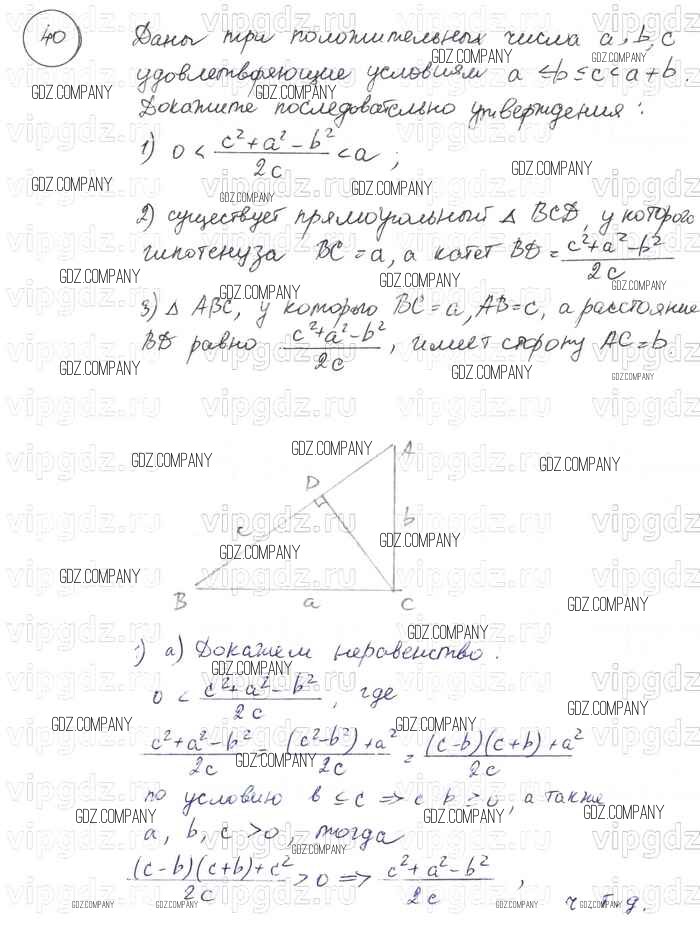 40
Даны три положительных числа a, b, c
удовлетворяющие условиям a ≤ b ≤ c < a + b.
Докажите последовательно утверждения:
1) 0 < (c² + a² − b²)/2c < a;
2) существует прямоугольный Δ BCD, у которого
гипотенуза BC = a, а катет BD = (c² + a² − b²)/2c
3) Δ ABC, у которого BC = a, AB = c, а расстояние
BD равно (c² + a² − b²)/2c, имеет сторону AC = b.
A
D
c
b
B
a
C
1) а) Докажем неравенство.
0 < (c² + a² − b²)/2c, где
(c² + a² − b²)/2c = ((c² − b²) + a²)/2c = ((c − b)(c + b) + a²)/2c
по условию b ≤ c ⇒ c b ≥ 0, а также
a, b, c > 0, тогда
((c − b)(c + b) + c²)/2c > 0 ⇒ (c² + a² − b²)/2c,
ч. т. д.
GDZ.COMPANY
vipgdz.ru